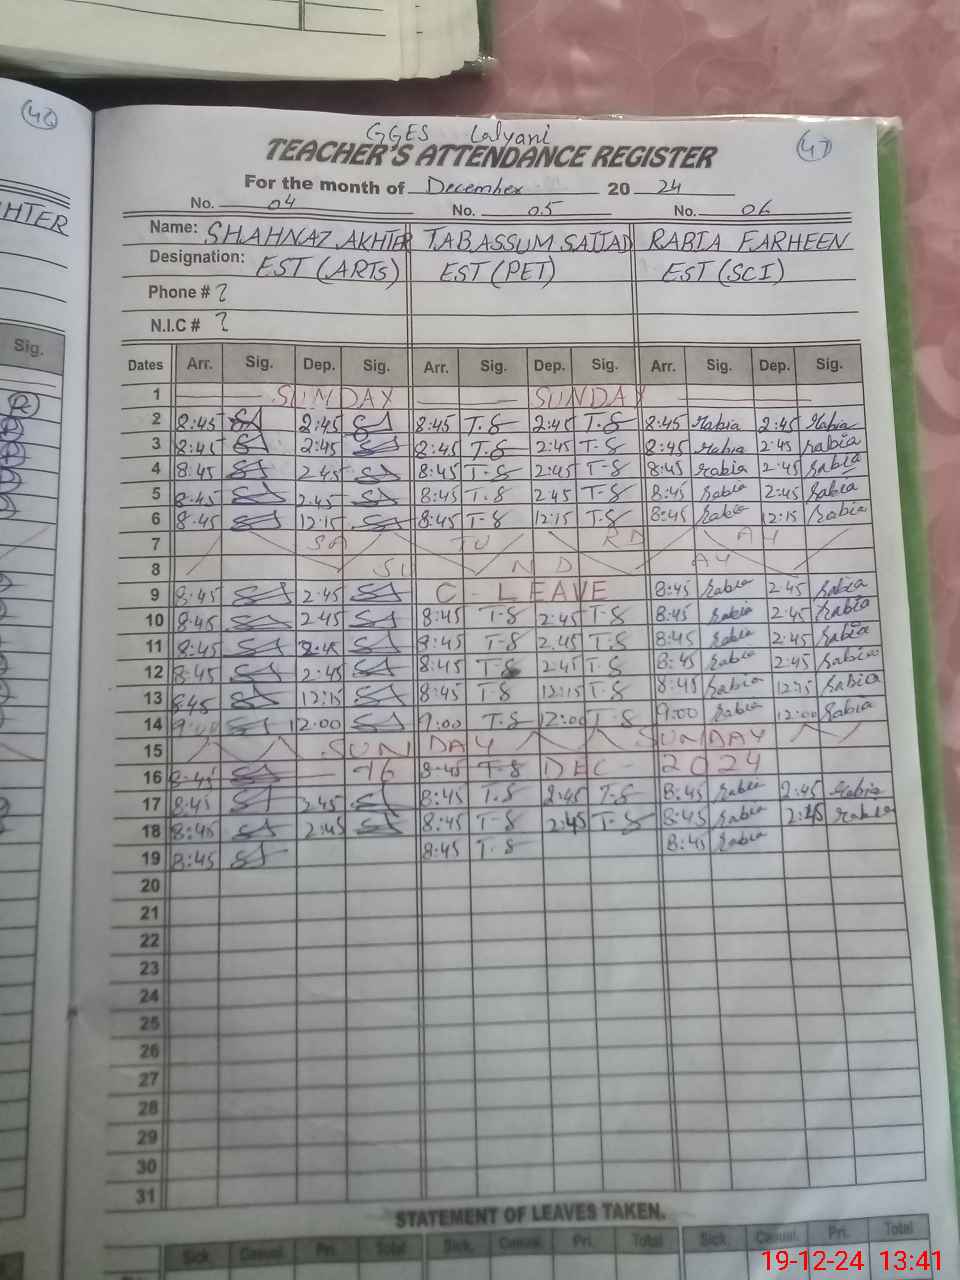 46
47
GGES Lalyani
TEACHER'S ATTENDANCE REGISTER
For the month of December 20 24
No. 04 No. 05 No. 06
HTER
Name: SHAHNAZ AKHTER TABASSUM SAJJAD RABIA FARHEEN
Designation: EST (ARTS) EST (PET) EST (SCI)
Phone # ?
N.I.C # ?
Sig.
Dates Arr. Sig. Dep. Sig. Arr. Sig. Dep. Sig. Arr. Sig. Dep. Sig.
1 SUNDAY SUNDAY
2 8:45 SA 2:45 SA 8:45 T-S 2:45 T-S 8:45 Rabia 2:45 Rabia
3 8:45 SA 2:45 SA 8:45 T-S 2:45 T-S 8:45 Rabia 2:45 Rabia
4 8:45 SA 2:45 SA 8:45 T-S 2:45 T-S 8:45 Rabia 2:45 Rabia
5 8:45 SA 2:45 SA 8:45 T-S 2:45 T-S 8:45 Rabia 2:45 Rabia
6 8:45 SA 12:15 SA 8:45 T-S 12:15 T-S 8:45 Rabia 12:15 Rabia
7 SA TU RD AY
8 SU ND AY
9 8:45 SA 2:45 SA C-LEAVE 8:45 Rabia 2:45 Rabia
10 8:45 SA 2:45 SA 8:45 T-S 2:45 T-S 8:45 Rabia 2:45 Rabia
11 8:45 SA 2:45 SA 8:45 T-S 2:45 T-S 8:45 Rabia 2:45 Rabia
12 8:45 SA 2:45 SA 8:45 T-S 2:45 T-S 8:45 Rabia 2:45 Rabia
13 8:45 SA 12:15 SA 8:45 T-S 12:15 T-S 8:45 Rabia 12:15 Rabia
14 9:00 SA 12:00 SA 9:00 T-S 12:00 T-S 9:00 Rabia 12:00 Rabia
15 SUNDAY SUNDAY
16 8:45 SA 16 8:45 T-S DEC- 2024
17 8:45 SA 2:45 SA 8:45 T-S 2:45 T-S 8:45 Rabia 2:45 Rabia
18 8:45 SA 2:45 SA 8:45 T-S 2:45 T-S 8:45 Rabia 2:45 Rabia
19 8:45 SA 8:45 T-S 8:45 Rabia
20
21
22
23
24
25
26
27
28
29
30
31
STATEMENT OF LEAVES TAKEN.
Sick Casual. Pri. Total Sick. Casual. Pri. Total Sick. Casual. Pri. Total
19-12-24 13:41